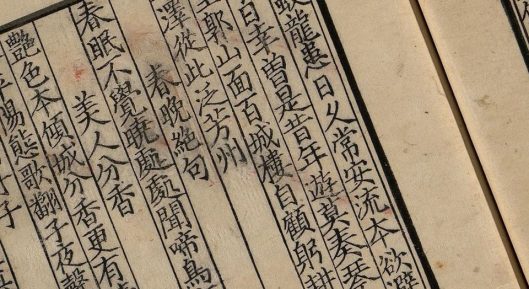 蛟龍患日久常安流本欲避
幸曾是昔年遊莫奏琴
郭山面百城樓自顧躬耕
澤從此泛芳州
春晚絕句
春眠不覺曉處處聞啼鳥
美人分香
豔色本傾城分香更有
平陽態歌翻子夜聲